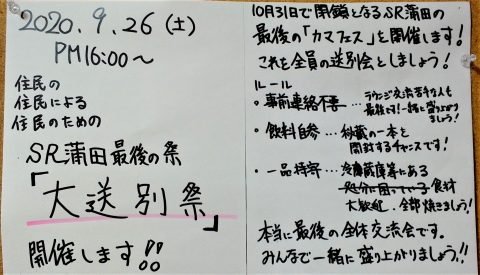 2020.9.26(土)
PM16:00〜
住民の
住民による
住民のための
SR蒲田最後の祭
「大送別祭」
開催します!!
10月31日で閉鎖となるSR蒲田の
最後の「カマフェス」を開催します!
これを全員の送別会としましょう!
ルール
・事前連絡不要…ラウンジ交流苦手な人も
最後です!一緒に盛り上がり
ましょう!
・飲料自参…秘蔵の一本を
開封するチャンスです!
・一品持寄…冷蔵庫等にある
処分に困っている食材
大歓迎、全部焼きましょう!
本当に最後の全体交流会です。
みんなで一緒に盛り上がりましょう!!